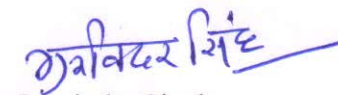 गुरविंदर सिंह